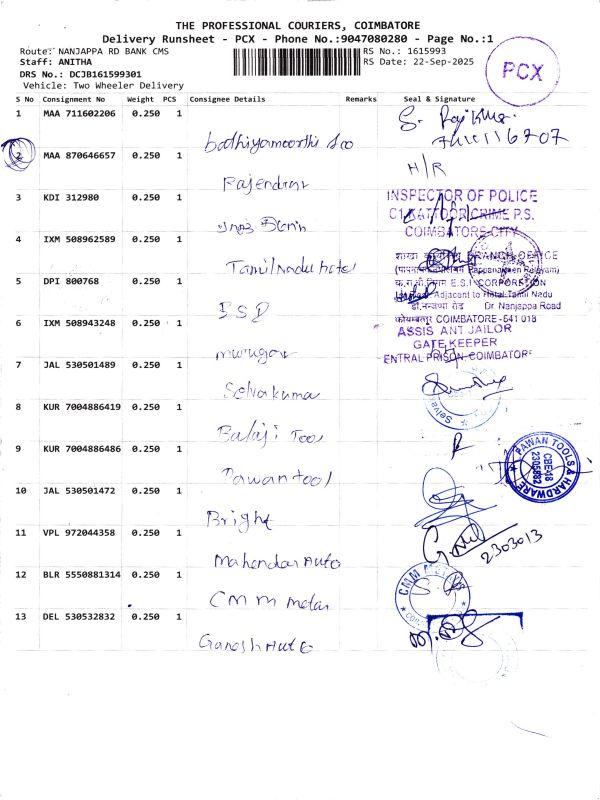 THE PROFESSIONAL COURIERS, COIMBATORE
Delivery Runsheet - PCX - Phone No.:9047080280 - Page No.:1
Route: NANJAPPA RD BANK CMS
RS No.: 1615993
Staff: ANITHA
RS Date: 22-Sep-2025
DRS No.: DCJB161599301
Vehicle: Two Wheeler Delivery
PCX
S No Consignment No Weight PCS Consignee Details Remarks Seal & Signature
1 MAA 711602206 0.250 1
2 MAA 870646657 0.250 1
H/R
Rajendran
3 KDI 312980 0.250 1
INSPECTOR OF POLICE
C1 KATTOOR CRIME P.S.
COIMBATORE-CITY
4 IXM 508962589 0.250 1
Tamilnadu hotel
BRANCH OFFICE
E.S.I CORPORTION
Adjacent to Hotel Tamil Nadu
Dr Nanjappa Road
5 DPI 800768 0.250 1
COIMBATORE -641 018
6 IXM 508943248 0.250 1
ASSIS ANT JAILOR
GATE KEEPER
ENTRAL PRISON-COIMBATORE
murugan
7 JAL 530501489 0.250 1
Selvakumar
8 KUR 7004886419 0.250 1
Balaji Tool
9 KUR 7004886486 0.250 1
PAWAN TOOLS & HARDWARE
Pawan tool
10 JAL 530501472 0.250 1
Bright
11 VPL 972044358 0.250 1
2303013
Mahendar Auto
12 BLR 5550881314 0.250 1
CMM METALS
CMM metal
13 DEL 530532832 0.250 1
Ganesh Auto